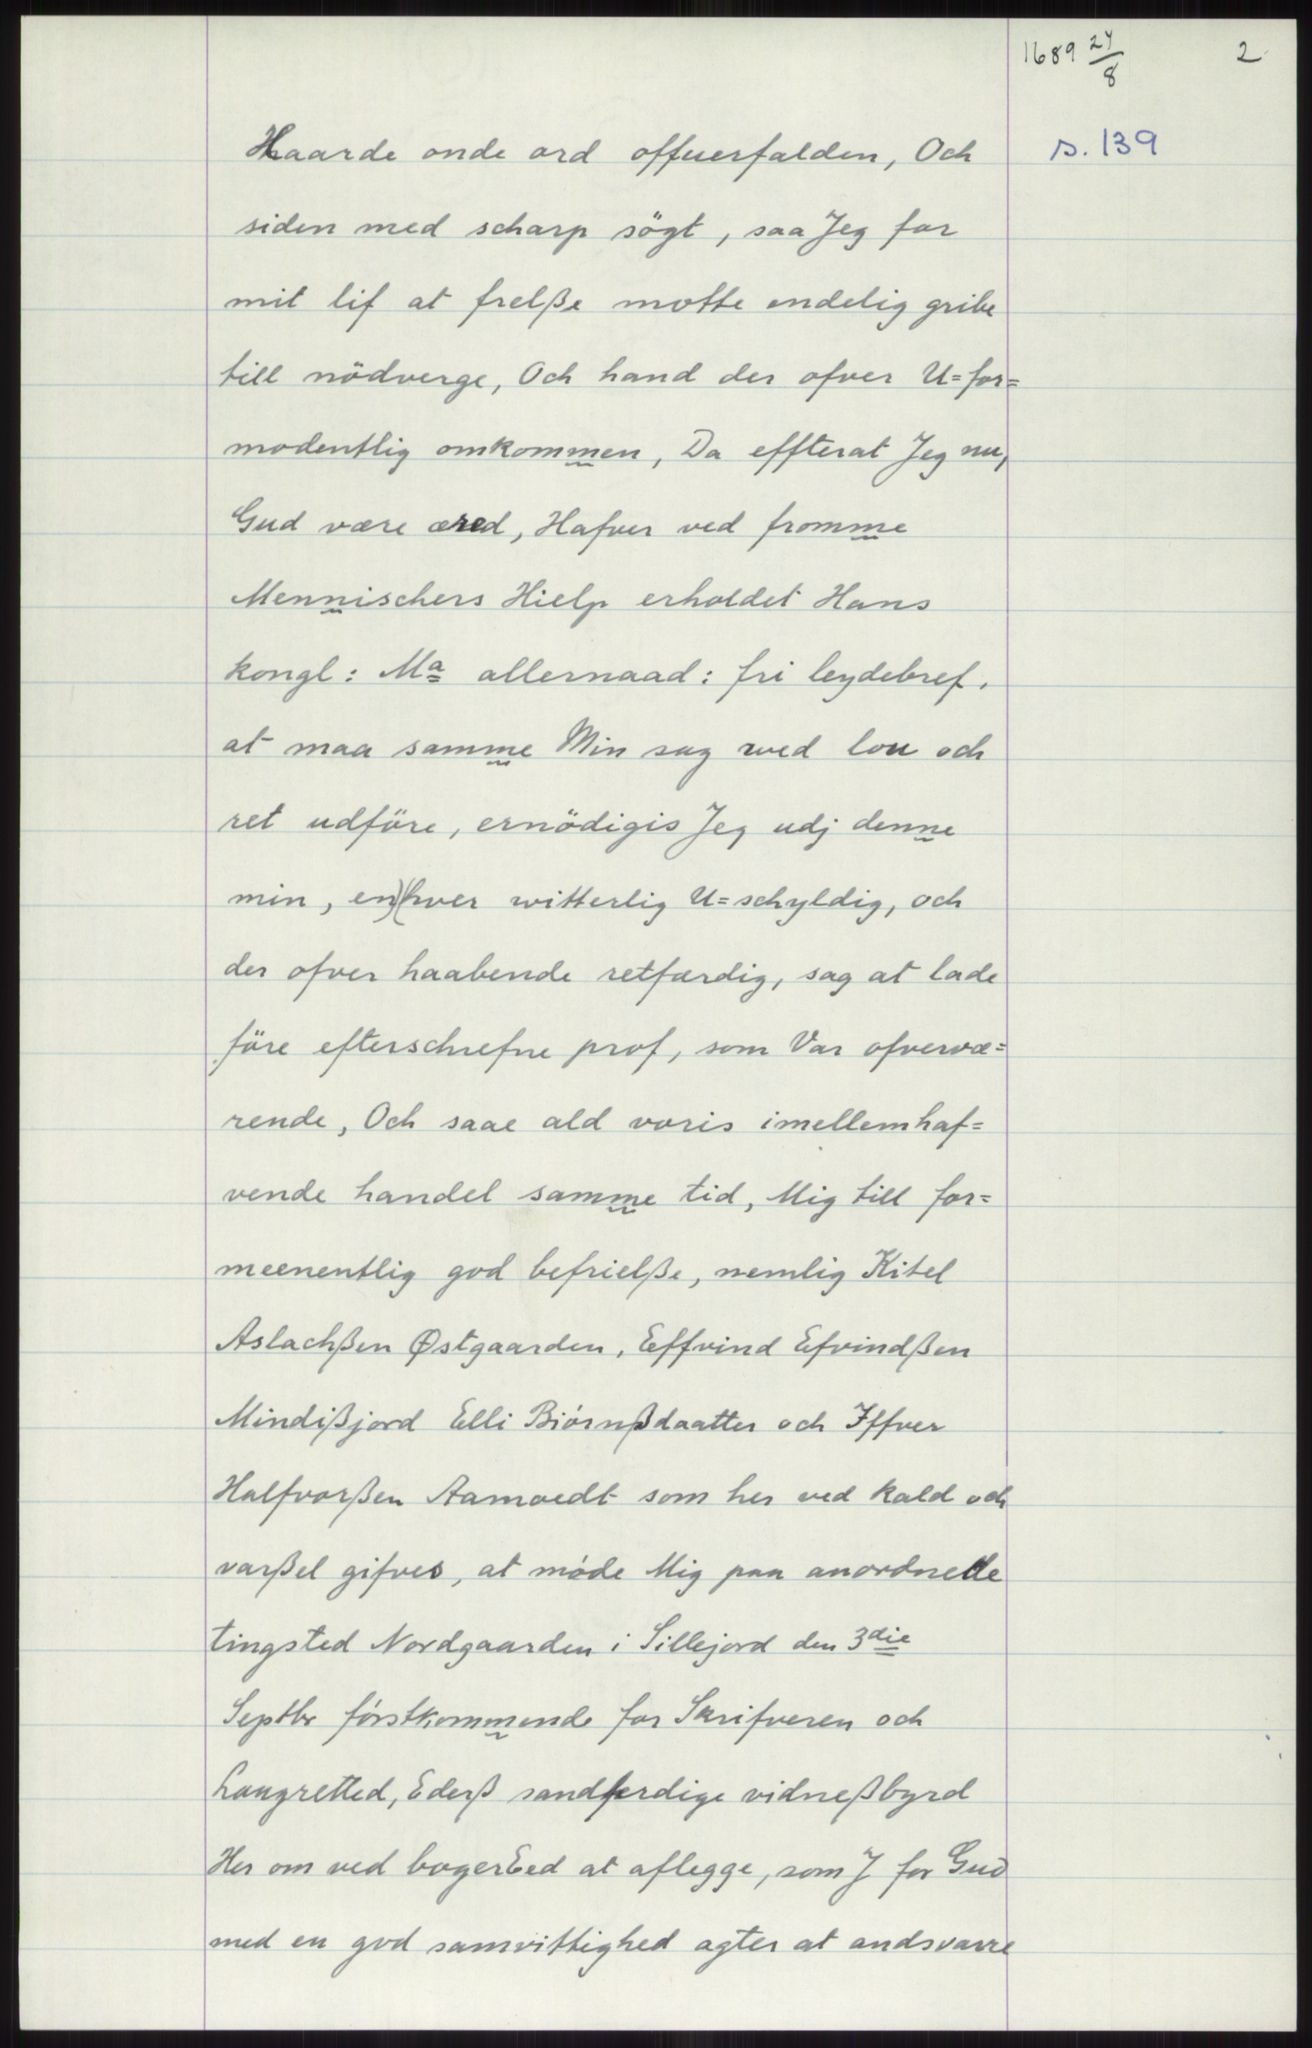 1689 24/8
2
s. 139
Haarde onde ord offuerfalden, Och
siden med scharp sögt, saa Jeg for
mit lif at frelße motte endelig gribe
till nödverge, Och hand der ofver U=for=
modentlig omkommen, Da effterat Jeg nu,
Gud være æred, Hafver ved fromme
Mennischers Hielp erholdet Hans
kongl: Ma allernaad: fri leydebref,
at maa samme Min sag wed lou och
ret udföre, ernödigis Jeg udj denne
min, en)(hver witterlig U=schyldig, och
der ofver haabende retfærdig, sag at lade
före efterschrefne prof, som Var ofverwæ=
rende, Och saae ald voris imellemhaf=
vende handel samme tid, Mig till for=
meenentlig god befrielße, nemlig Kitel
Aslachßen Østgaarden, Eeffvind Efvindßen
Mindißjord Elli Biórnßdaatter och Iffver
Halfvorßen Aamoedt som her ved kald och
varßel gifves, at móde Mig paa anordnede
tingsted Nordgaarden i Sillejord den 3die
Septbr fórstkommende for Skrifveren och
Laugretted, Ederß sandferdige vidneßbyrd
Her om ved bogerEed at aflegge, som J for Gud
med en god samvittighed agter at andsvarre